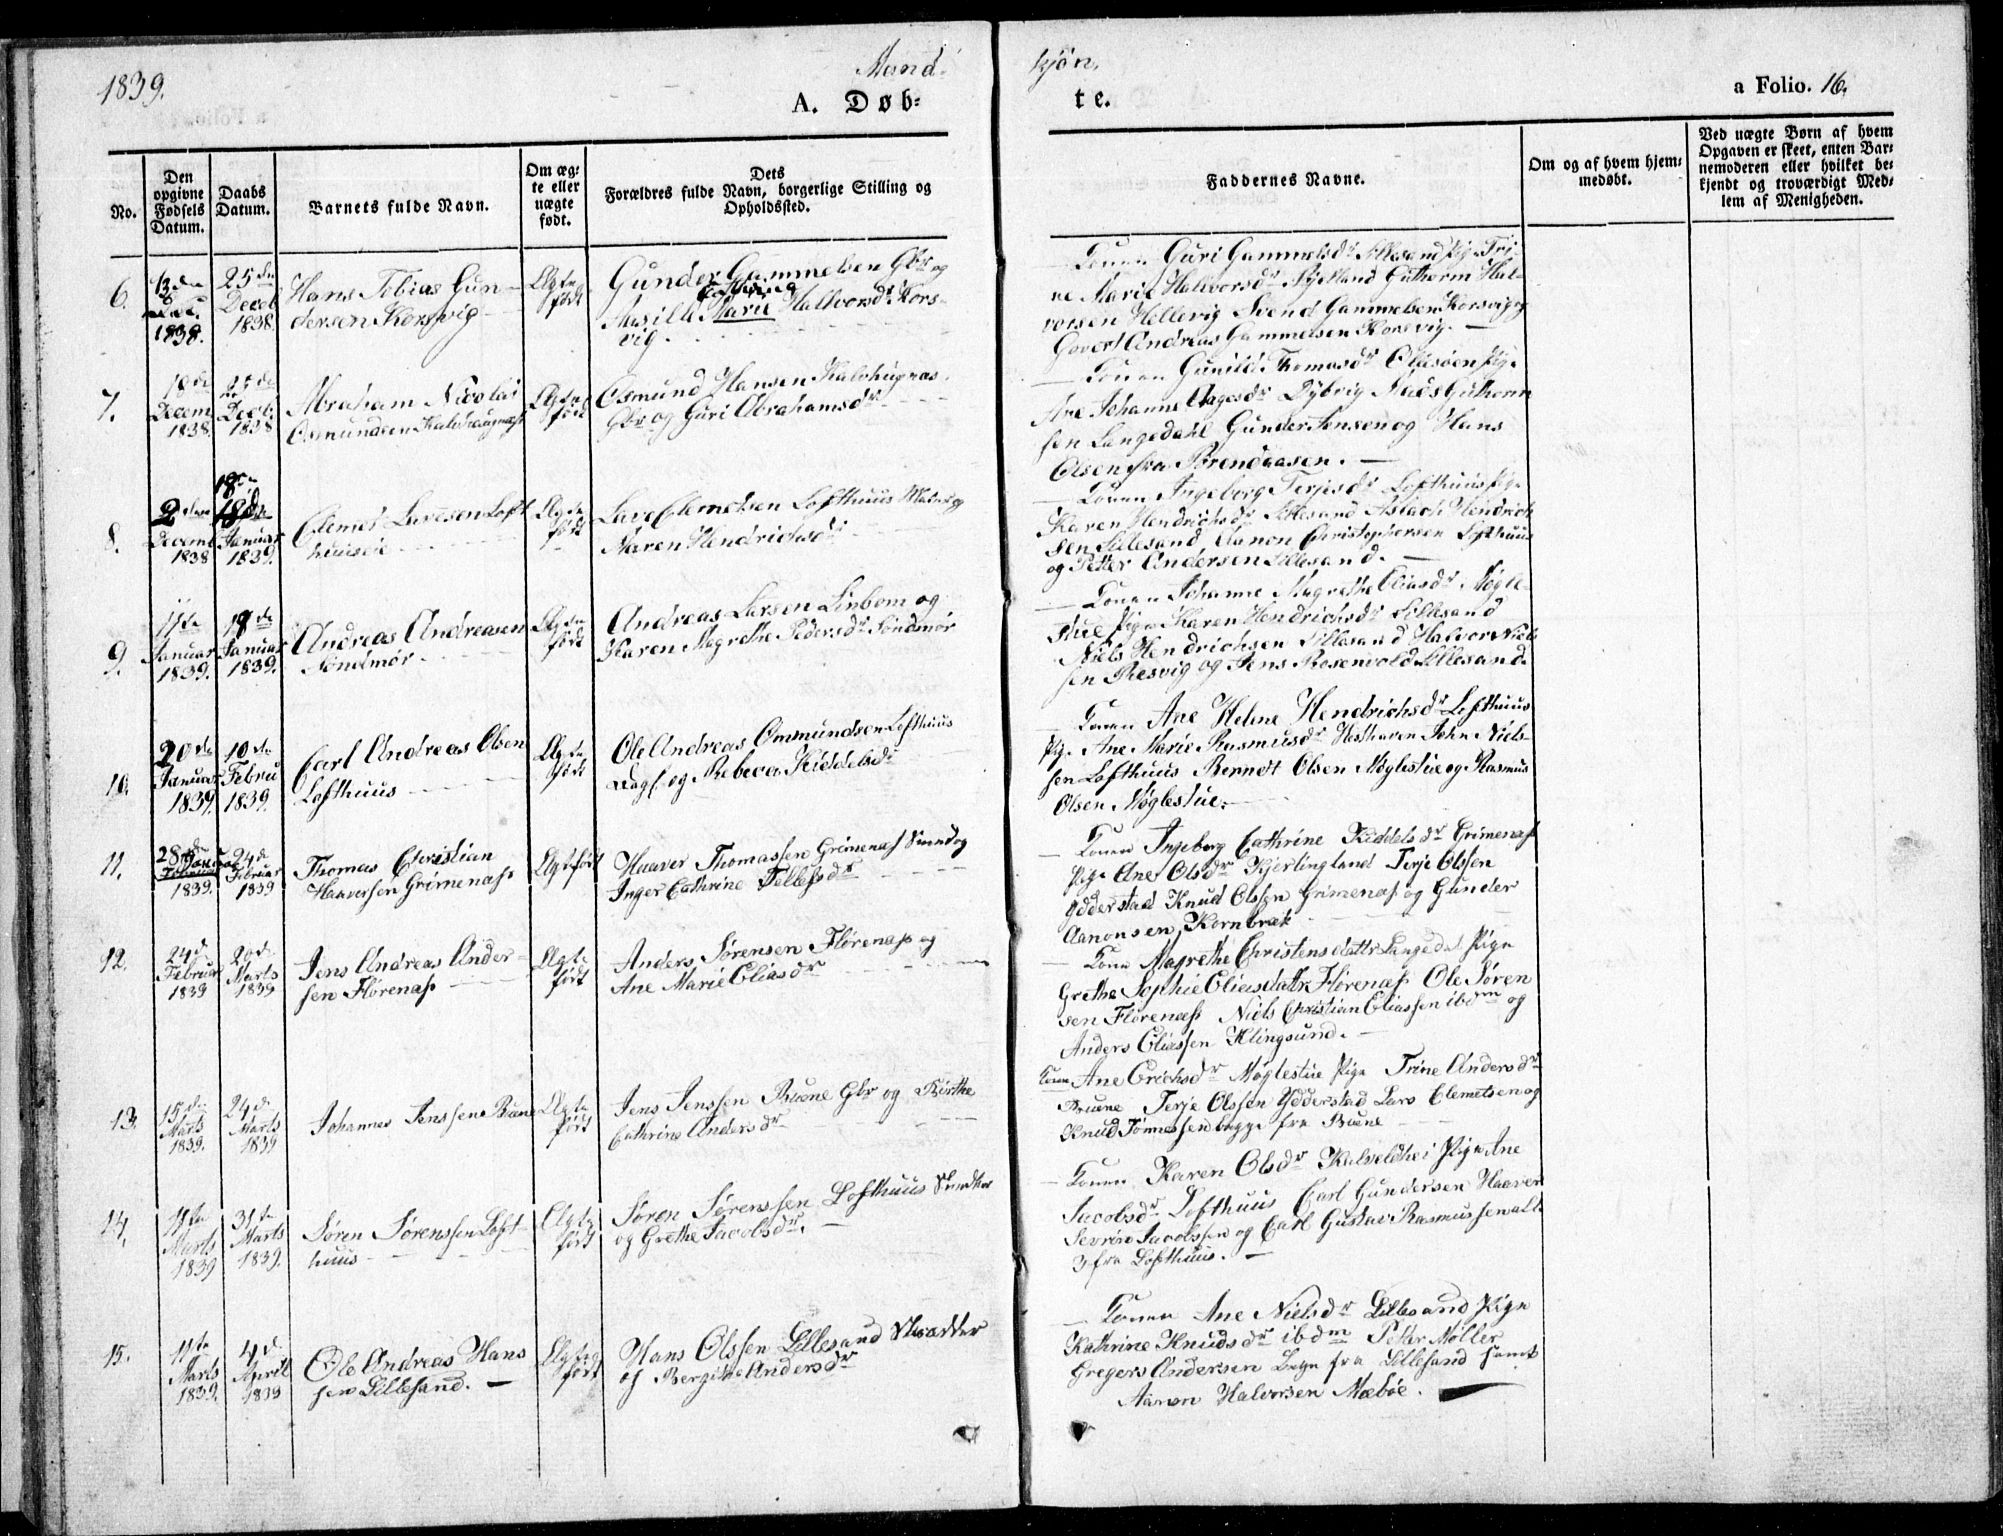 1839.
Mand-
kjøn.
A. Døb=
te.
a Folio. 16.
No.
Den opgivne Fødsels Datum.
Daabs Datum.
Barnets fulde Navn.
Om æg= te eller uægte født.
Dets Forældres fulde Navn, borgerlige Stilling og Opholdssted.
Faddernes Navne.
Om og af hvem hjem= medøbt.
Ved uægte Børn af hvem Opgaven er skeet, enten Bar= nemoderen eller hvilket be= kjendt og troværdigt Med= lem af Menigheden.
6.
13de Dec. 1838.
25de Deceb 1838.
Hans Tobias Gun-
dersen Korsvig
Ægte født
Gunder Gammelsen Gbr og
Aasille Marie Hallvorsdr Kors-
vig.
Konen Guri Gammelsdr Lillesand Pige Tri-
ne Marie Halvorsdr Guthorm Hal-
vorsen Hellevig Svend Gammelsen Korsvig og
Govert Andreas Gammelsen Korsvig.
7.
18de Decem 1838.
25de Decb. 1838
Abraham Nicolai
Osmundsen
Ægte født
Osmund Hansen
Gbr og Guri Abrahamsdr
Konen Gunild Thomasdr Pige
Ane Johanne Aagesdr Dybvig Guthorm
sen Langedahl Gunder Jensen og Hans
Olsen fra Brendaasen.
8.
2den Decemb 1838
18de Januar 1839.
Clemet Lavesen Loft
huus
Ægte født
Lave Clemetsen Lofthuus
Maren Hendrichsdr
Konen Ingeborg Terjesdr Lofthuus Pige
Karen Hendrichsdr Lillesand Aslach Hendrich
sen Lillesand Aanon Christophersen Lofthuus
og Petter Andersen Lillesand.
9.
11te Januar 1839.
18de Januar 1839.
Andreas Andreasen
Søndmør
Ægte født
Andreas Larsen Linbom og
Karen Magrethe Pedersdr Søndmør
Konen Johanne Magrethe Eliasdr Møgle-
stue Pige Karen Hendrichsdr Lillesand
Niels Hendrichsen Lillesand Halvor Niels
sen Resvig og Jens Rosenvold Lillesand.
10.
20de Januar 1839.
10de Febru 1839.
Carl Andreas Olsen
Lofthuus
Ægte født
Ole Andreas Ommundsen Lofthuus
og Rebeca Kiddelsdr
Konen Ane Helene Hendrichsdr Lofthuus
Pige Ane Marie Rasmusdr Hesthaven John Niels-
sen Lofthuus Berendt Olsen Møglestue og Rasmus
Olsen Møglestue.
11.
28de Januar 1839.
24d Februar 1839
Thomas Christian
Haaversen Grimenæs
Ægte født
Haaver Thomassen Grimenæs Smed og
Inger Cathrine Tellefsdr
Konen Ingeborg Cathrine Kiddelsdr Grimenæs
Pige Ane Olsdr Kjerlingland Terje Olssen
Ydderstad Knud Olssen Grimenæs og Gunder
Aanonsen Kornbræk
12.
24d Februar 1839
20d. Marts 1839
Jens Andreas Ander-
sen Flørenæs
Ægte født
Anders Sørensen Flørenæs og
Ane Marie Eliasdr
Kone Magrethe Christensdattr Langedal Pige
Grethe Sophie Eliasdattr Flørenæs Ole Søren
sen Flørenæs Niels Christian Eliassen ibdm og
Anders Eliassen Klingsund.
13.
15de Marts 1839.
24d Marts 1839
Johannes Jenssen Bruene
Ægte født
Jens Jenssen Bruene Gbr og Birthe
Cathrine Andersdr
Konen Ane Erichsdr Møglestue Pige Trine Andersdr
Bruene Terje Olssen Ydderstad Lars Clemetsen og
Knud Tønnessen begge fra Bruene
14.
11te Marts 1839
31te Marts 1839.
Søren Sørenssen Loft-
huus
Ægte født
Søren Sørenssen Lofthuus
og Grethe Jacobsdr.
Konen Karen Olsdr Kalveldhei Pige Ane
Jacobsdr Lofthuus Carl Gundersen Haaver
Sevrin Jacobssen og Carl Gustav Rasmussen alle
3 fra Lofthuus.
15.
11te Marts 1839.
4d April 1839
Ole Andreas Hans
sen Lillesand.
Ægte født
Hans Olssen Lillesand Skrædder
og Bergithe Andersdr
Konen Ane Nielsdr Lillesand Pige
Kathrine Knudsdr ibdm Peter Møller
Gregers Andersen Begge fra Lillesand samt
Aanon Halvorsen Mæbøe.